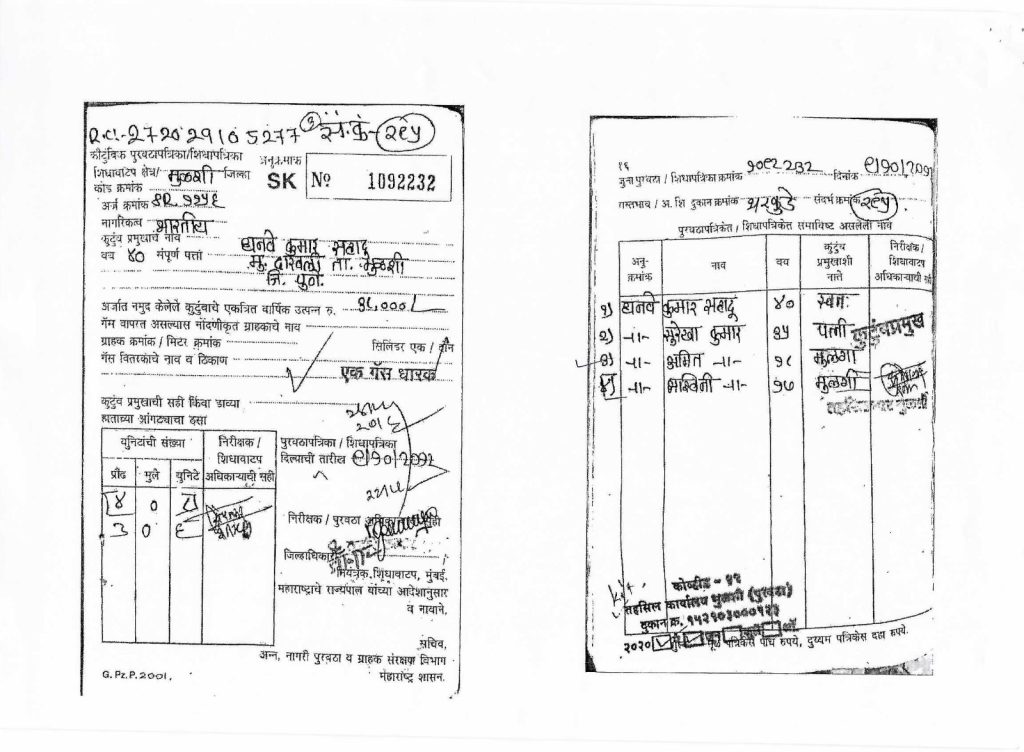 R.C.-272029105277 ③ सं.क्रं-२९५
कौटुंबिक पुरवठापत्रिका/शिधापत्रिका
शिधावाटप क्षेत्र/ मुळशी जिल्हा
कोड क्रमांक
अनुक्रमांक
SK No 1092232
अर्ज क्रमांक
नागरिकत्व भारतीय
कुटुंब प्रमुखाचे नाव धनवे कुमार
वय ४० संपूर्ण पत्ता मु. दारवली ता. मुळशी
जि. पुणे.
अर्जात नमुद केलेले कुटुंबाचे एकत्रित वार्षिक उत्पन्न रु. १५,०००/-
गॅस वापरत असल्यास नोंदणीकृत ग्राहकाचे नाव
ग्राहक क्रमांक / मिटर क्रमांक सिलिंडर एक / दोन
गॅस वितरकाचे नाव व ठिकाण
एक गॅस धारक
कुटुंब प्रमुखाची सही किंवा डाव्या
हाताच्या आंगठ्याचा ठसा
युनिटांची संख्या
निरीक्षक / शिधावाटप अधिकाऱ्याची सही
प्रौढ मुले युनिटे
४ ० ८
3 0 ६
पुरवठापत्रिका / शिधापत्रिका
दिल्याची तारीख ९/१०/२०१२
निरीक्षक / पुरवठा अधिकाऱ्याची सही
जिल्हाधिकारी
नियंत्रक शिधावाटप, मुंबई.
महाराष्ट्राचे राज्यपाल यांच्या आदेशानुसार
व नावाने,
सचिव,
अन्न, नागरी पुरवठा व ग्राहक संरक्षण विभाग
महाराष्ट्र शासन.
G. Pz. P. 2001,
१६
जुना पुरवठा / शिधापत्रिका क्रमांक १०९२२३२ दिनांक ९/१०/२०१२
रास्तभाव / अ. शि दुकान क्रमांक धरकुडे संदर्भ क्रमांक २९५
पुरवठापत्रिकेत / शिधापत्रिकेत समाविष्ट असलेली नावे
अनु-क्रमांक नाव वय कुटुंब प्रमुखाशी नाते निरीक्षक / शिधावाटप अधिकाऱ्याची सही
१) धनवे कुमार ४० स्वतः
२) -॥- सुरेखा कुमार ३५ पत्नी
कुटुंबप्रमुख
३) -॥- अमित -॥- १८ मुलगा
४) -॥- अश्विनी -॥- १७ मुलगी
तहसिलदार मुळशी
कोव्हीड - १९
तहसिल कार्यालय मुळशी (पुरवठा)
दुकान क्र. १५२१०३०००१२३
२०२०
मूळ पत्रिकेस पाच रुपये, दुय्यम पत्रिकेस दहा रुपये.